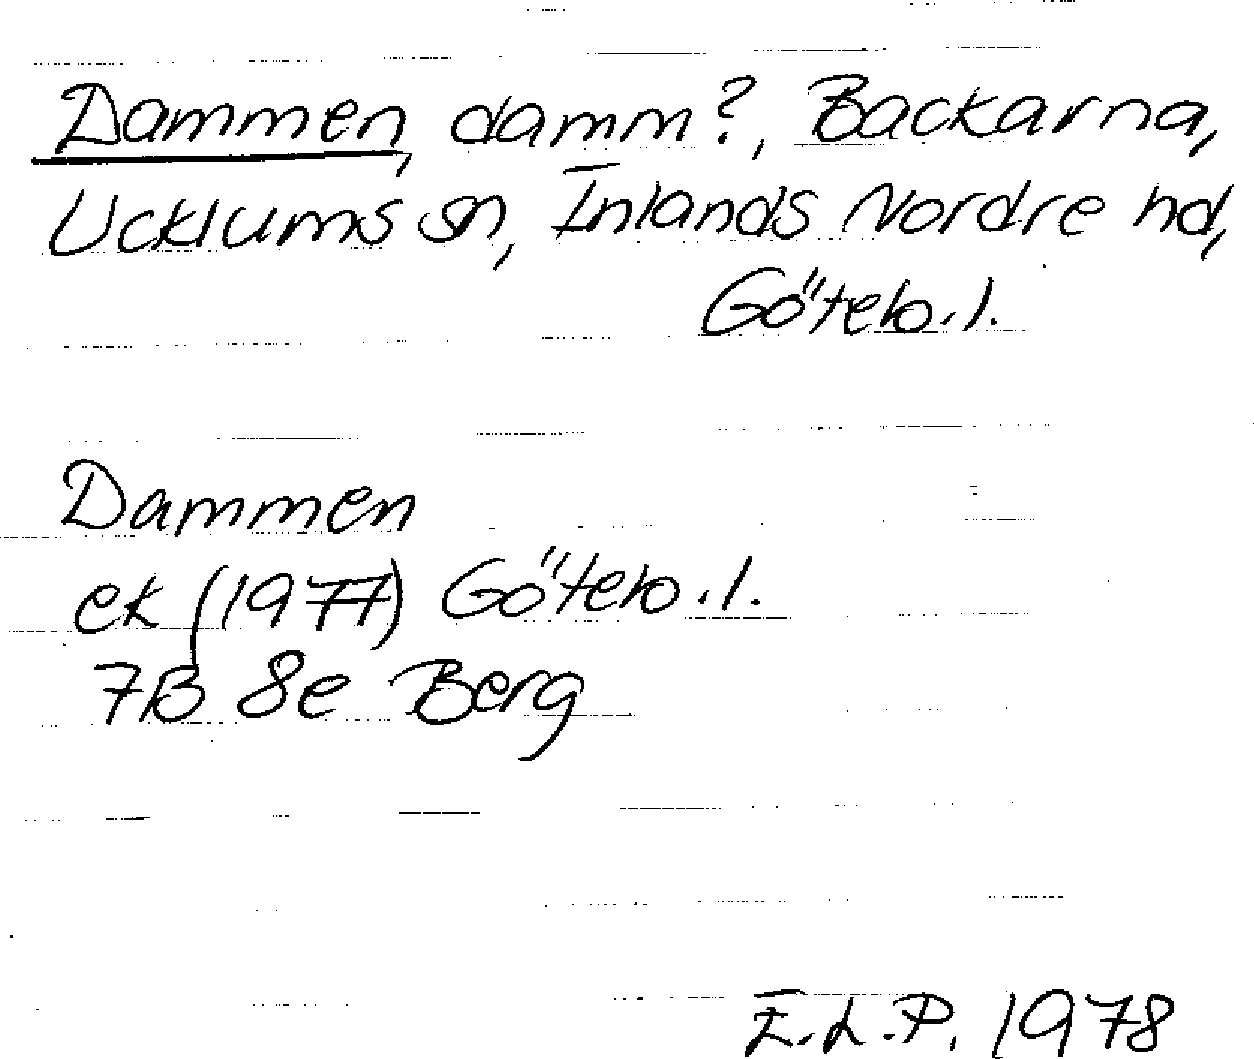 Dammen, damm?, Backarna,
Ucklums sn, Inlands Nordre hd,
Göteb.l.
Dammen
ek (1977) Göteb.l.
7B 8e Berg
E.L.P. 1978